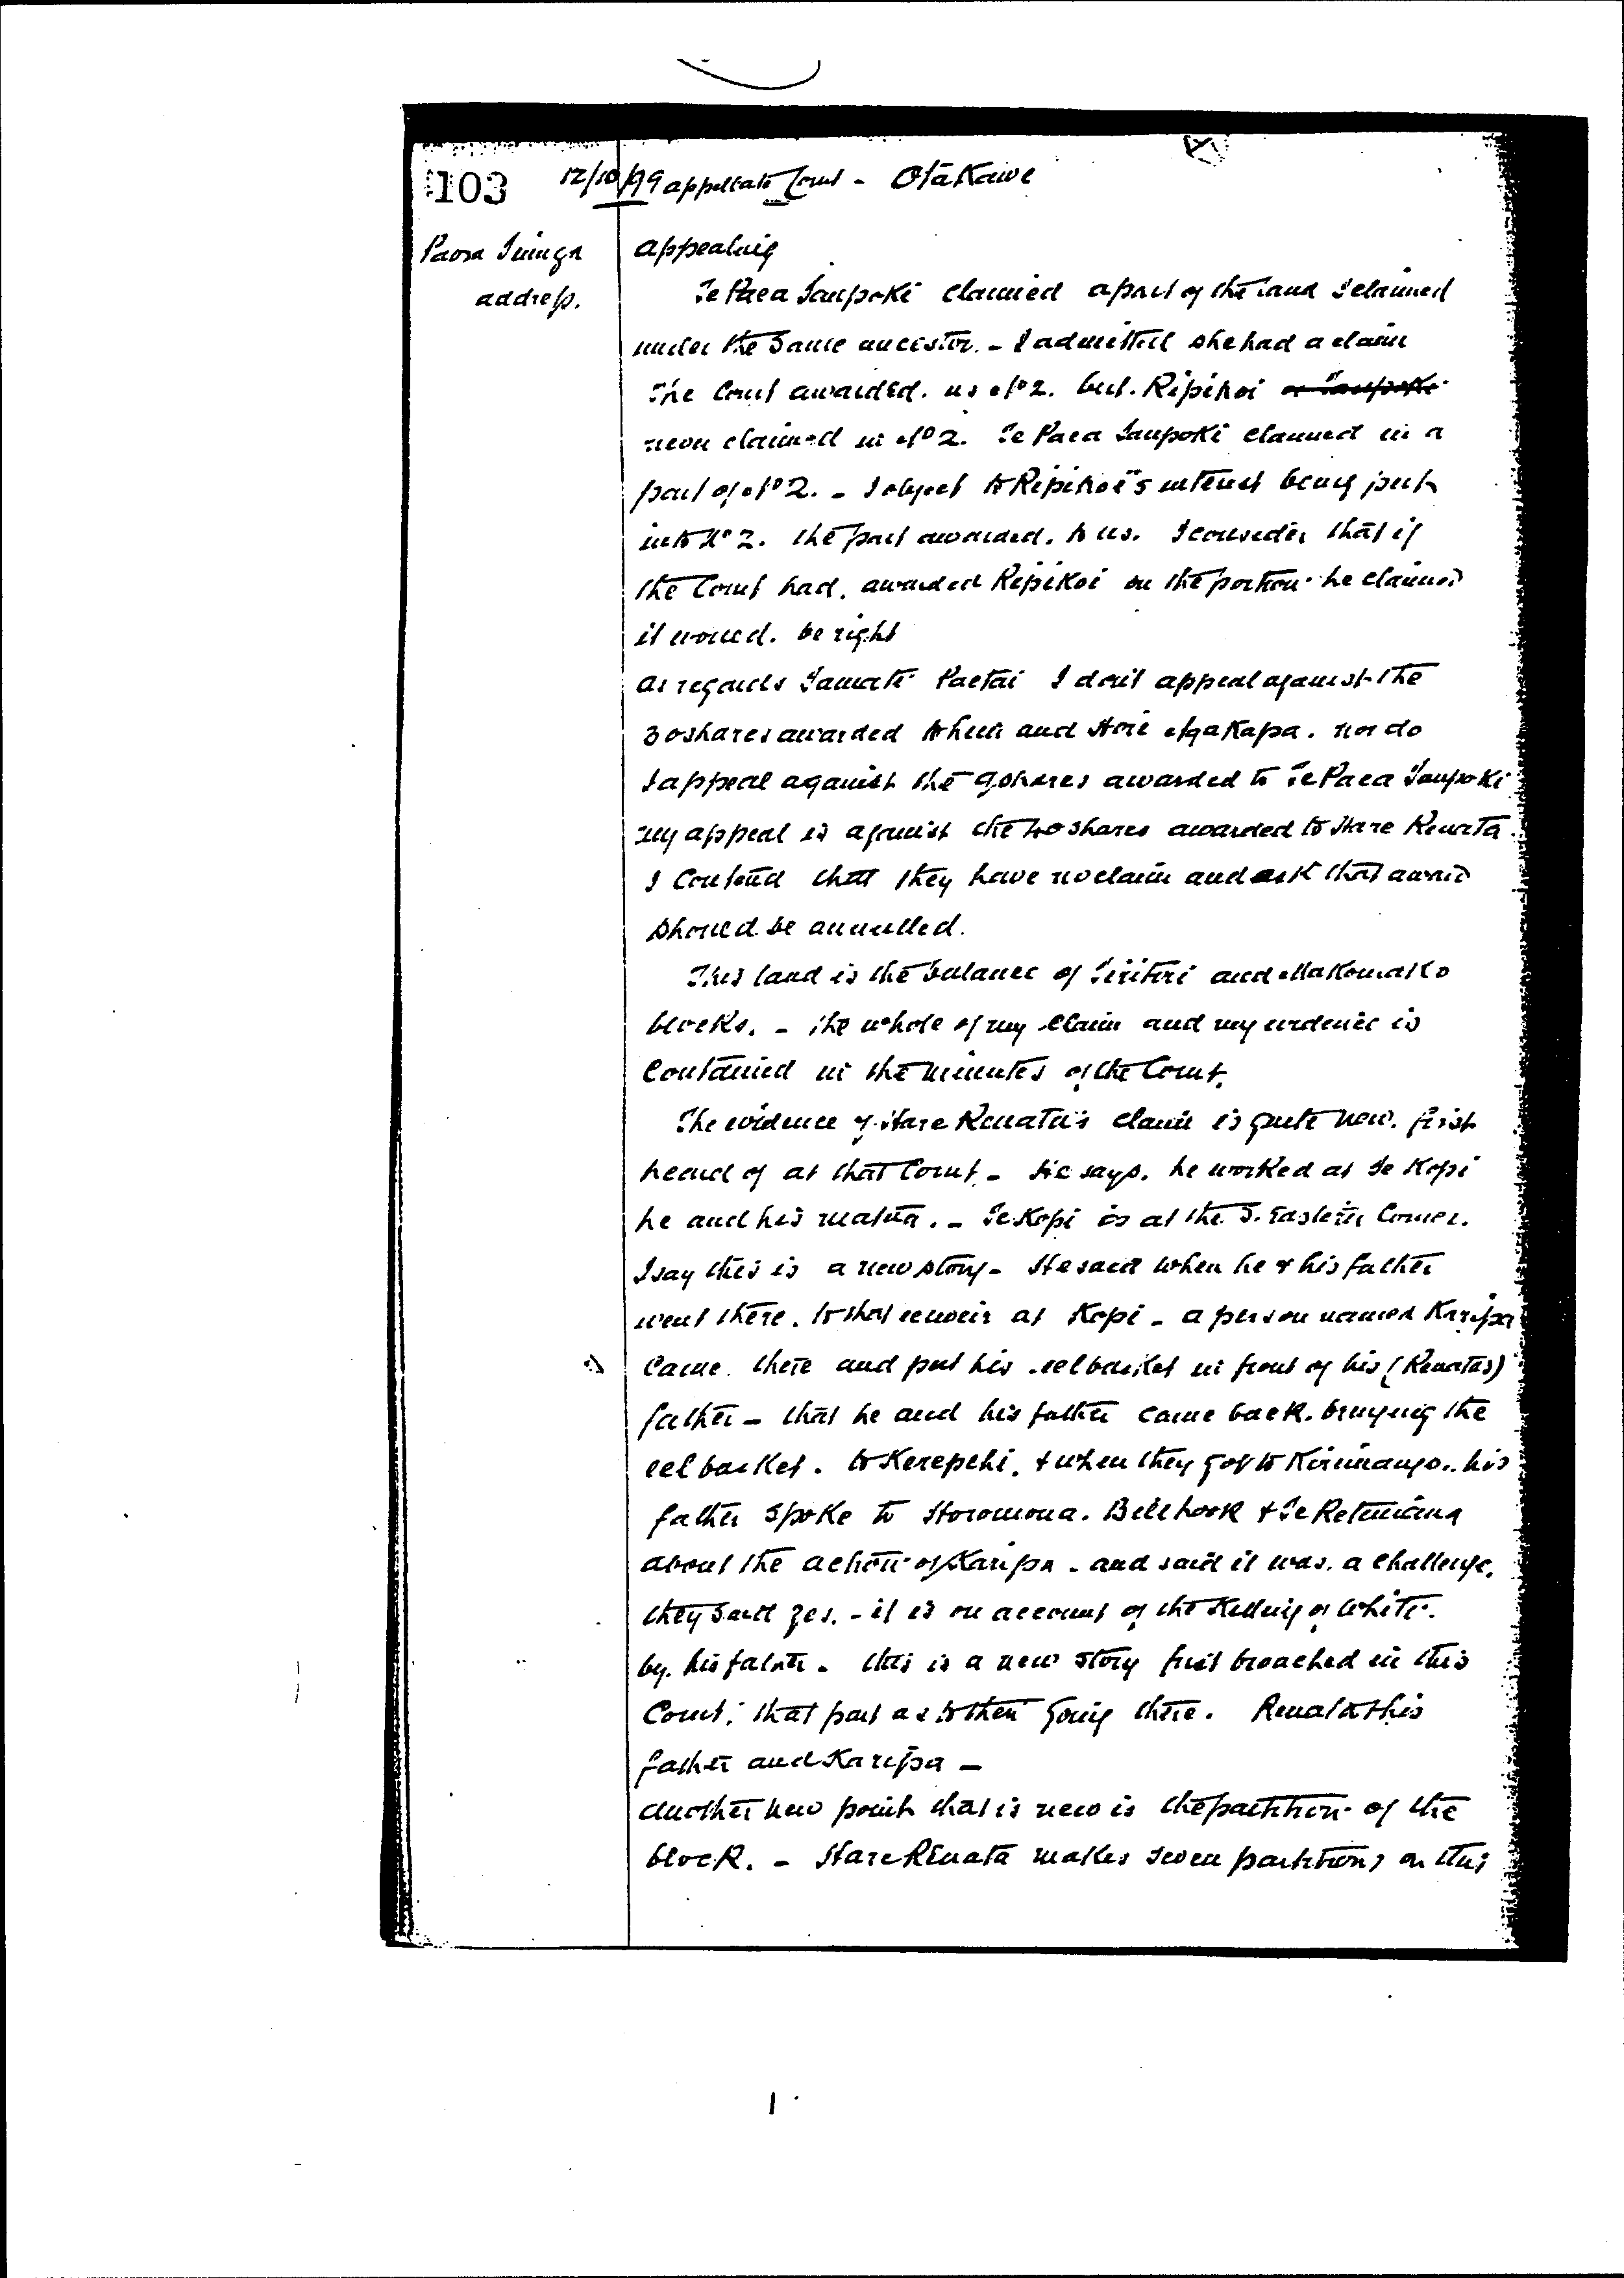 103 12/10/99 appellate Court - Otakawe
Paora Tininga
address.
appealing
Te Paea Taupoki claimed a part of the land I claimed
under the same ancestor. - I admitted she had a claim
The Court awarded. us No 2. but. Ripikoi or Taupoki
never claimed in No 2. Te Paea Taupoki claimed in a
part of No 2. - I object to Ripikoi's interest being put
into No 2. the part awarded. to us. I consider that if
the Court had. awarded Ripikoi on the portion he claimed
it would. be right
As regards Tamati Paetai I don't appeal against the
30 shares awarded to him and Hori Ngakapa. nor do
I appeal against the 9 shares awarded to Te Paea Taupoki
my appeal is against the 40 shares awarded to Hare Renata.
I Contend that they have no claim and ask that award
should be annulled.
This land is the balance of Tiritiri and Makomako
blocks. - the whole of my claim and my evidence is
Contained in the minutes of the Court.
The evidence of Hare Renata's claim is quite new. first
heard of at that Court. - He says. he worked at Te Kopi
he and his matua. - Te Kopi is at the S. Eastern Corner.
I say this is a new story - He said when he & his father
went there. to that at Kopi - a person named Karipa
Came. there and put his eel basket in front of his (Renata's)
father - that he and his father came back. bringing the
eel basket. to Kerepehi. & when they got to .. his
father spoke to Horomona. Billhook & Te Retimana
about the action of Karipa - and said it was. a challenge.
they said yes. - it is on account of the Killing of White.
by. his father - this is a new story first broached in this
Court; that part as to their going there. Renata & his
father and Karipa -
Another new point that is new is the partition of the
block. - Hare Renata makes seven partitions on this
1